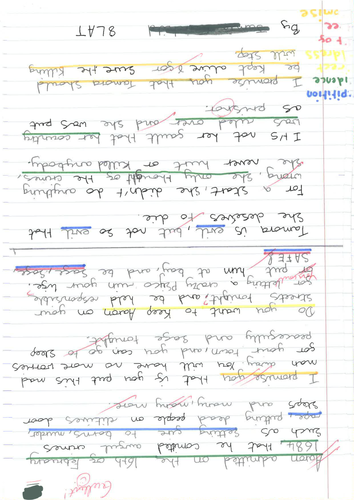 Excellent!
Aaron admitted on the 16th of February
1684, he comitted awful crimes
Such as setting fire to barns, murder,
putting dead people on citicens door
steps and many, many more.
I promise you that if you put this mad
man away, You will have no more worries
for your town, and you can go to sleep
peacefully and safe tonight.
Do you want to keep Aaron on your
streets tonight? and be held responsible
for letting a crazy Psyco ruin your lifes.
or put him at bay, and be Safe, Safe,
SAFER
Tamora is evil but not so evil that
She deserves to die
For a start, she didn't do anything
wrong, She only thought of the crimes,
She never hurt or killed anybody.
It's not her fault that her country
was ruled over and she was put
as prisner.
I promise you that Tamora should
be kept alive for sure the killing
will stop.
By 8LAT